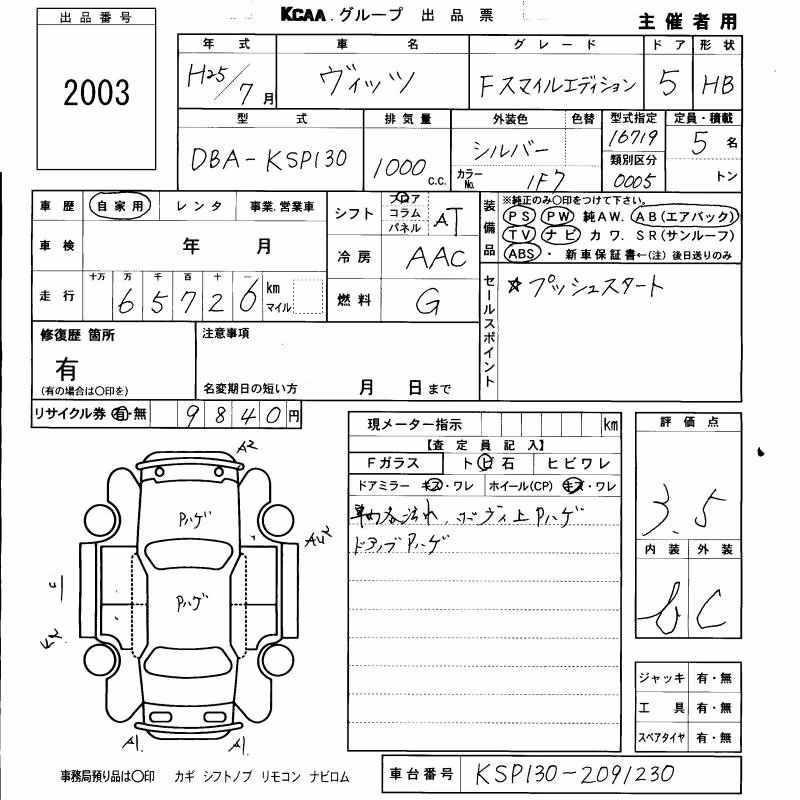 出品番号
2003
KCAA.グループ 出品票
主催者用
年式 車名 グレード ドア 形状
H25/7月 ヴィッツ Fスマイルエディション 5 HB
型式 排気量 外装色 色替 型式指定 定員・積載
DBA-KSP130 1000 C.C. シルバー 16719 5名
カラーNo. 1F7 類別区分 0005 トン
車歴 自家用 レンタ 事業.営業車
シフト フロア コラム パネル AT
装備品
※純正のみ〇印をつけて下さい。
PS PW 純AW. AB(エアバック)
TV ナビ カワ. SR(サンルーフ)
ABS・新車保証書←(注)後日送りのみ
車検 年 月
冷房 AAC
走行 十万 万 千 百 十 一
65726 km マイル
燃料 G
セールスポイント
☆プッシュスタート
修復歴 箇所
有
(有の場合は〇印を)
注意事項
名変期日の短い方 月 日まで
リサイクル券 有・無 9840円
現メーター指示 km
【査定員記入】
Fガラス トビ石 ヒビワレ
ドアミラー キズ・ワレ ホイール(CP) キズ・ワレ
ボディ上Pハゲ
Pハゲ
評価点
3.5
内装 外装
b C
A2
Pハゲ
Pハゲ
A1 A1
ジャッキ 有・無
工具 有・無
スペアタイヤ 有・無
事務局預り品は〇印 カギ シフトノブ リモコン ナビロム
車台番号 KSP130-2091230